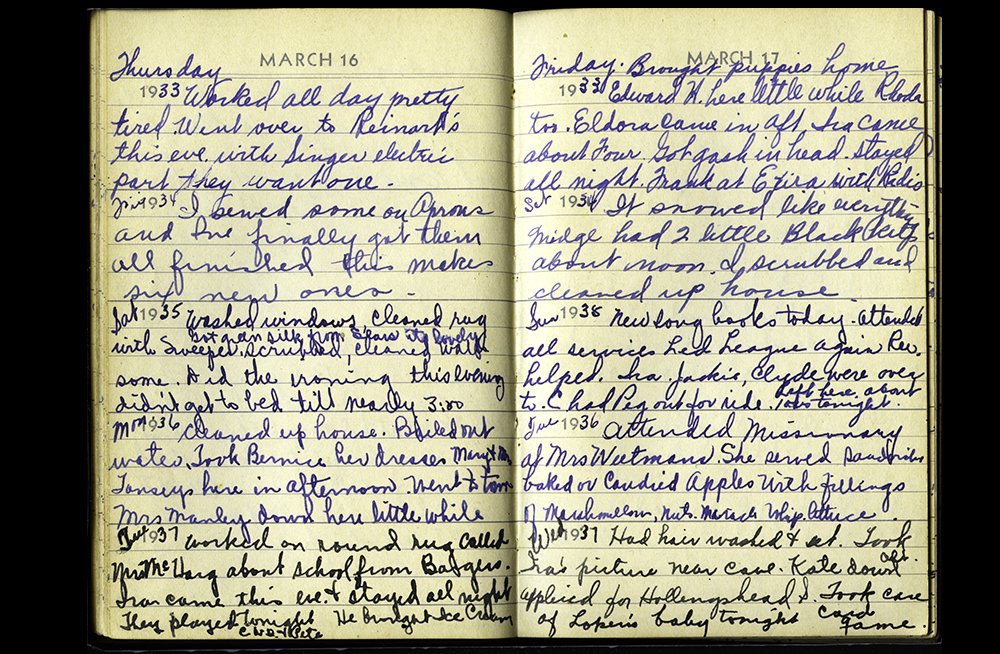 MARCH 16
Thursday
1933 Worked all day pretty
tired. Went over to Reinart's
this eve. with Singer electric
part they want one.
Fri 1934 I sewed some on Aprons
and I've finally got them
all finished this makes
six new ones.
Sat 1935 Washed windows, cleaned rug
Got green silk from Sears its lovely
with Sweeper. Scrubbed, cleaned walls
some. Did the ironing this evening
didn't get to bed till nearly 3:00
Mon 1936 Cleaned up house. Boiled out
water. Took Bernice her dresses Mary & Mrs
Tanseys here in afternoon Went to town
Mrs Manley down here little while
Tue 1937 Worked on round rug Called
Mrs Mc Harg about school from Badgers.
Ira came this eve. & stayed all night
They played tonight He brought Ice Cream
MARCH 17
Friday. Brought puppies home
1933 Edward H. here little while Rhoda
too. Eldora came in aft Ira came
about Four. Got gash in head. Stayed
all night. Frank at Exira with Radio
Sat 1934 It snowed like everything
Midge had 2 little Black
about noon. I scrubbed and
cleaned up house.
Sun 1935 New Song books today. Attended
all services Led League again Rev.
helped. Ira. Jackie, Clyde were over
to. C had Peg out for ride. Left here about
tonight.
Tue 1936 Attended Missionary
at Mrs She served Sandwiches
baked or Candied Apples with fillings
of Marshmellow, Nuts. Whip. lettuce.
Wed 1937 Had hair washed & set. Took
Ira's picture near cave. Kate down
applied for Hollingshead S. Took care
of baby tonight Card
Game.